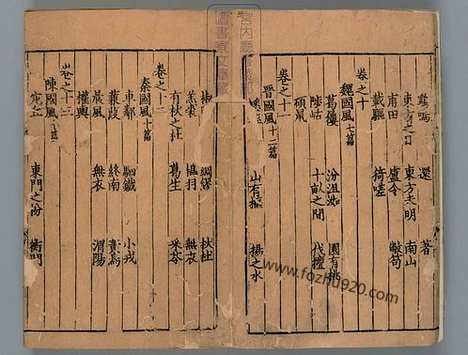 雞鳴 還 著
東方之日 東方未明 南山
甫田 盧令 敝笱
載驅 猗嗟
卷之十
魏國風七篇
葛屨 汾沮洳 園有桃
陟岵 十畝之間 伐檀
碩鼠
卷之十一
晉國風十二篇
蟋蟀 山有樞 揚之水
綢繆 杕杜
羔裘 鴇羽 無衣
有杕之杜 葛生 采苓
卷之十二
秦國風十篇
車鄰 駟鐵 小戎
蒹葭 終南 黃鳥
晨風 無衣 渭陽
權輿
卷之十三
陳國風
宛丘 東門之枌 衡門
www.fozhu920.com